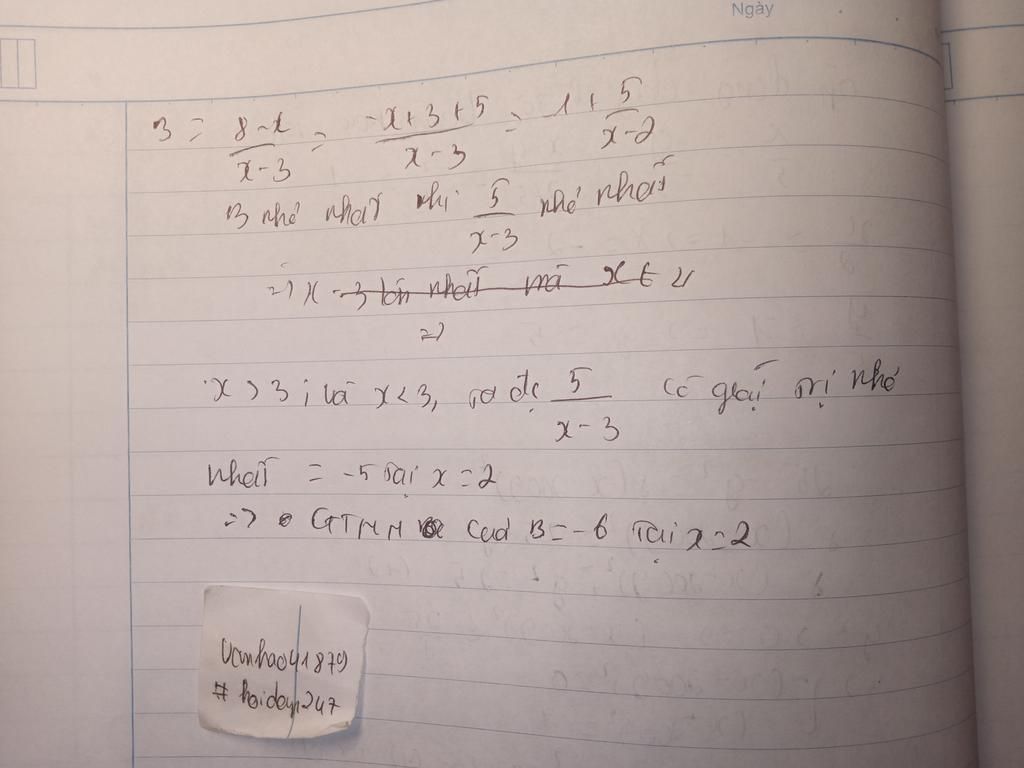 Ngày
B = \frac{8-x}{x-3} = \frac{-x+3+5}{x-3} = -1 + \frac{5}{x-2}
B nhỏ nhất khi \frac{5}{x-3} nhỏ nhất
=> x - 3 lớn nhất mà x ∈ Z
=>
x > 3 ; và x < 3, ta đc \frac{5}{x-3} có giá trị nhỏ
nhất = -5 tại x = 2
=> GTNN của B = -6 tại x = 2
Vanhao41879
# hoidap247